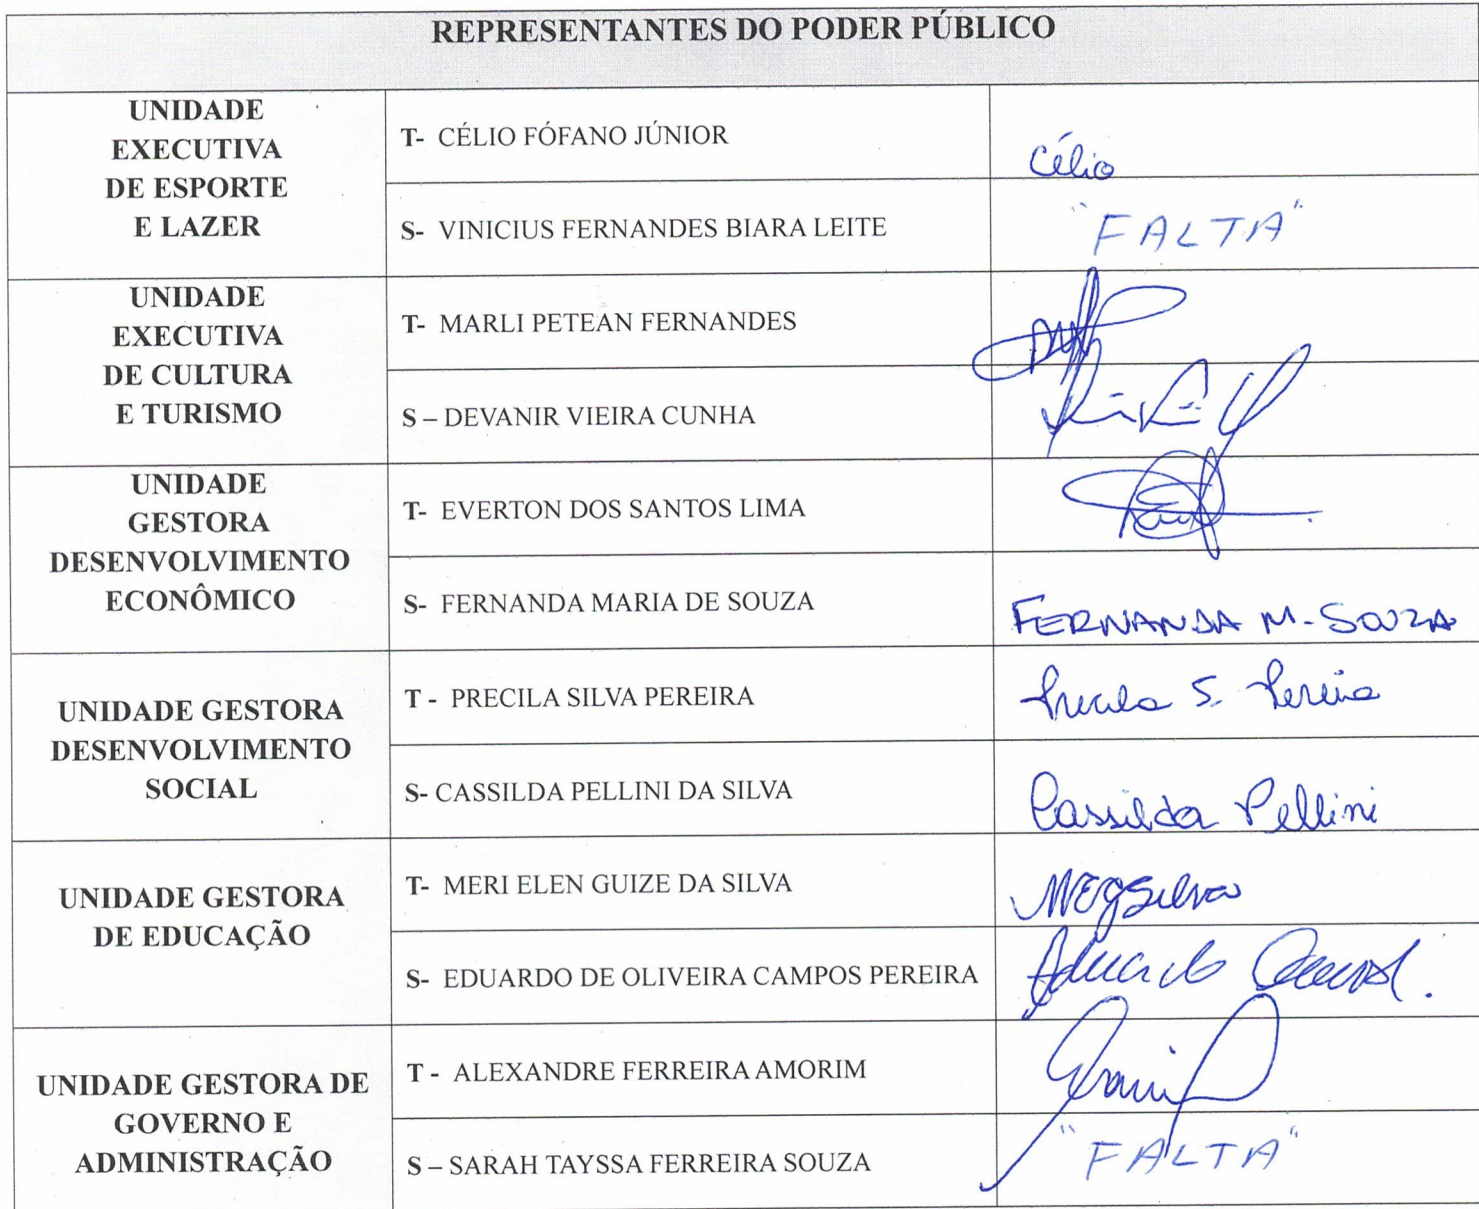 REPRESENTANTES DO PODER PÚBLICO
UNIDADE
EXECUTIVA
DE ESPORTE
E LAZER
T- CÉLIO FÓFANO JÚNIOR
Célio
S- VINICIUS FERNANDES BIARA LEITE
"FALTA"
UNIDADE
EXECUTIVA
DE CULTURA
E TURISMO
T- MARLI PETEAN FERNANDES
S – DEVANIR VIEIRA CUNHA
UNIDADE
GESTORA
DESENVOLVIMENTO
ECONÔMICO
T- EVERTON DOS SANTOS LIMA
S- FERNANDA MARIA DE SOUZA
FERNANDA M. SOUZA
UNIDADE GESTORA
DESENVOLVIMENTO
SOCIAL
T - PRECILA SILVA PEREIRA
Precila S. Pereira
S- CASSILDA PELLINI DA SILVA
Cassilda Pellini
UNIDADE GESTORA
DE EDUCAÇÃO
T- MERI ELEN GUIZE DA SILVA
MEGSilva
S- EDUARDO DE OLIVEIRA CAMPOS PEREIRA
Eduardo
UNIDADE GESTORA DE
GOVERNO E
ADMINISTRAÇÃO
T - ALEXANDRE FERREIRA AMORIM
S – SARAH TAYSSA FERREIRA SOUZA
"FALTA"